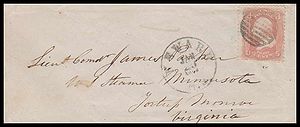 NEWARK
Lieut Comdr James
Steamer Minnesota
Fortress Monroe
Virginia